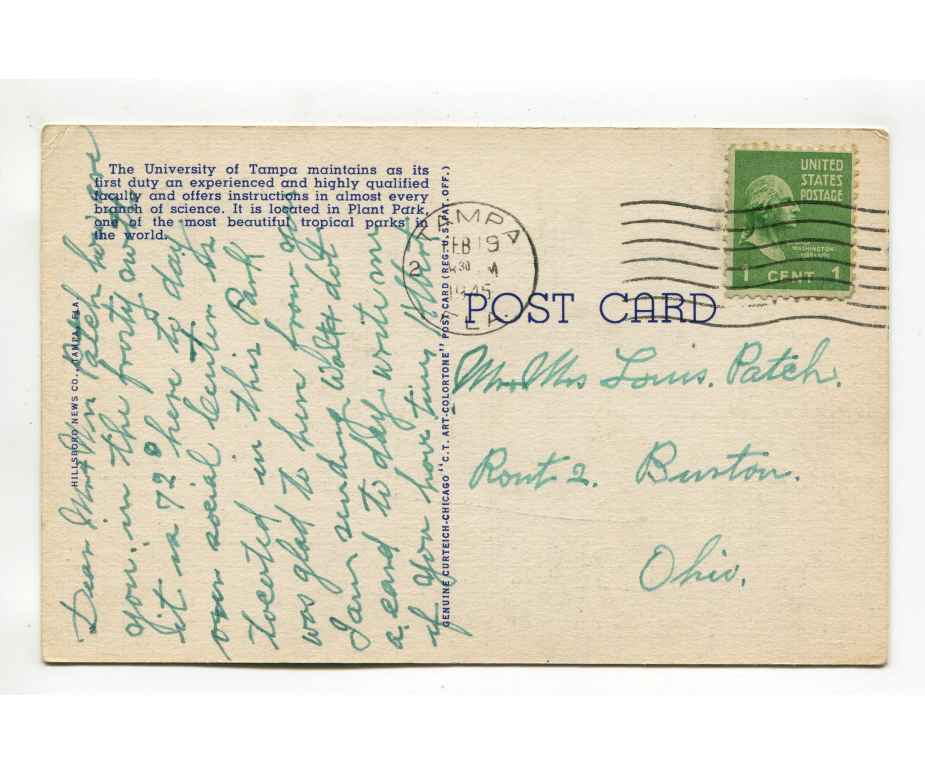 The University of Tampa maintains as its
first duty an experienced and highly qualified
faculty and offers instructions in almost every
branch of science. It is located in Plant Park,
one of the most beautiful tropical parks in
the world.
HILLSBORO NEWS CO., TAMPA, FLA.
Dear Mr & Mrs Patch how are
you in the frosty north
it is 79° here to day
our social Center is
located in this Park
was glad to here from you
I am sending Walt & dot
a card to day. write me
if you have time
GENUINE CURTEICH-CHICAGO "C.T. ART-COLORTONE" POST CARD (REG. U.S. PAT. OFF.)
TAMPA
FEB 19
2
1945
FLA.
UNITED
STATES
POSTAGE
WASHINGTON
1 CENT 1
POST CARD
Mr & Mrs Louis. Patch.
Rout 2. Burton.
Ohio.